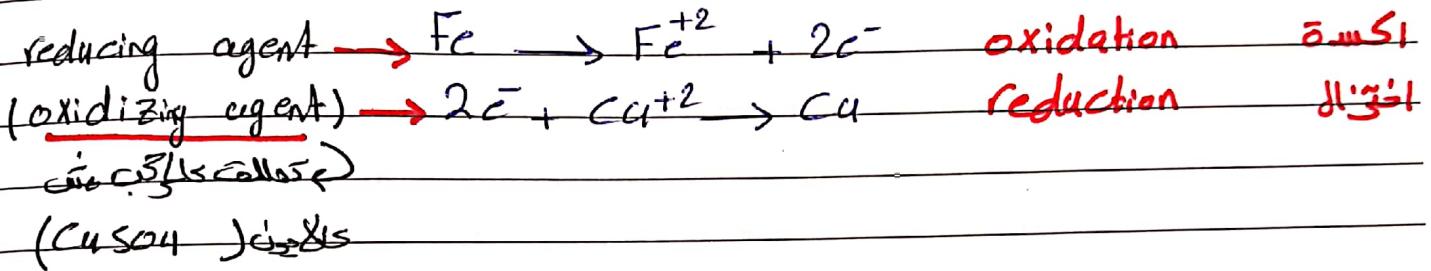 reducing agent → Fe → Fe⁺² + 2e⁻ oxidation اكسدة
(oxidizing agent) → 2e⁻ + Cu⁺² → Cu reduction اختزال
عالمركب مش
عالايون (CuSO4)